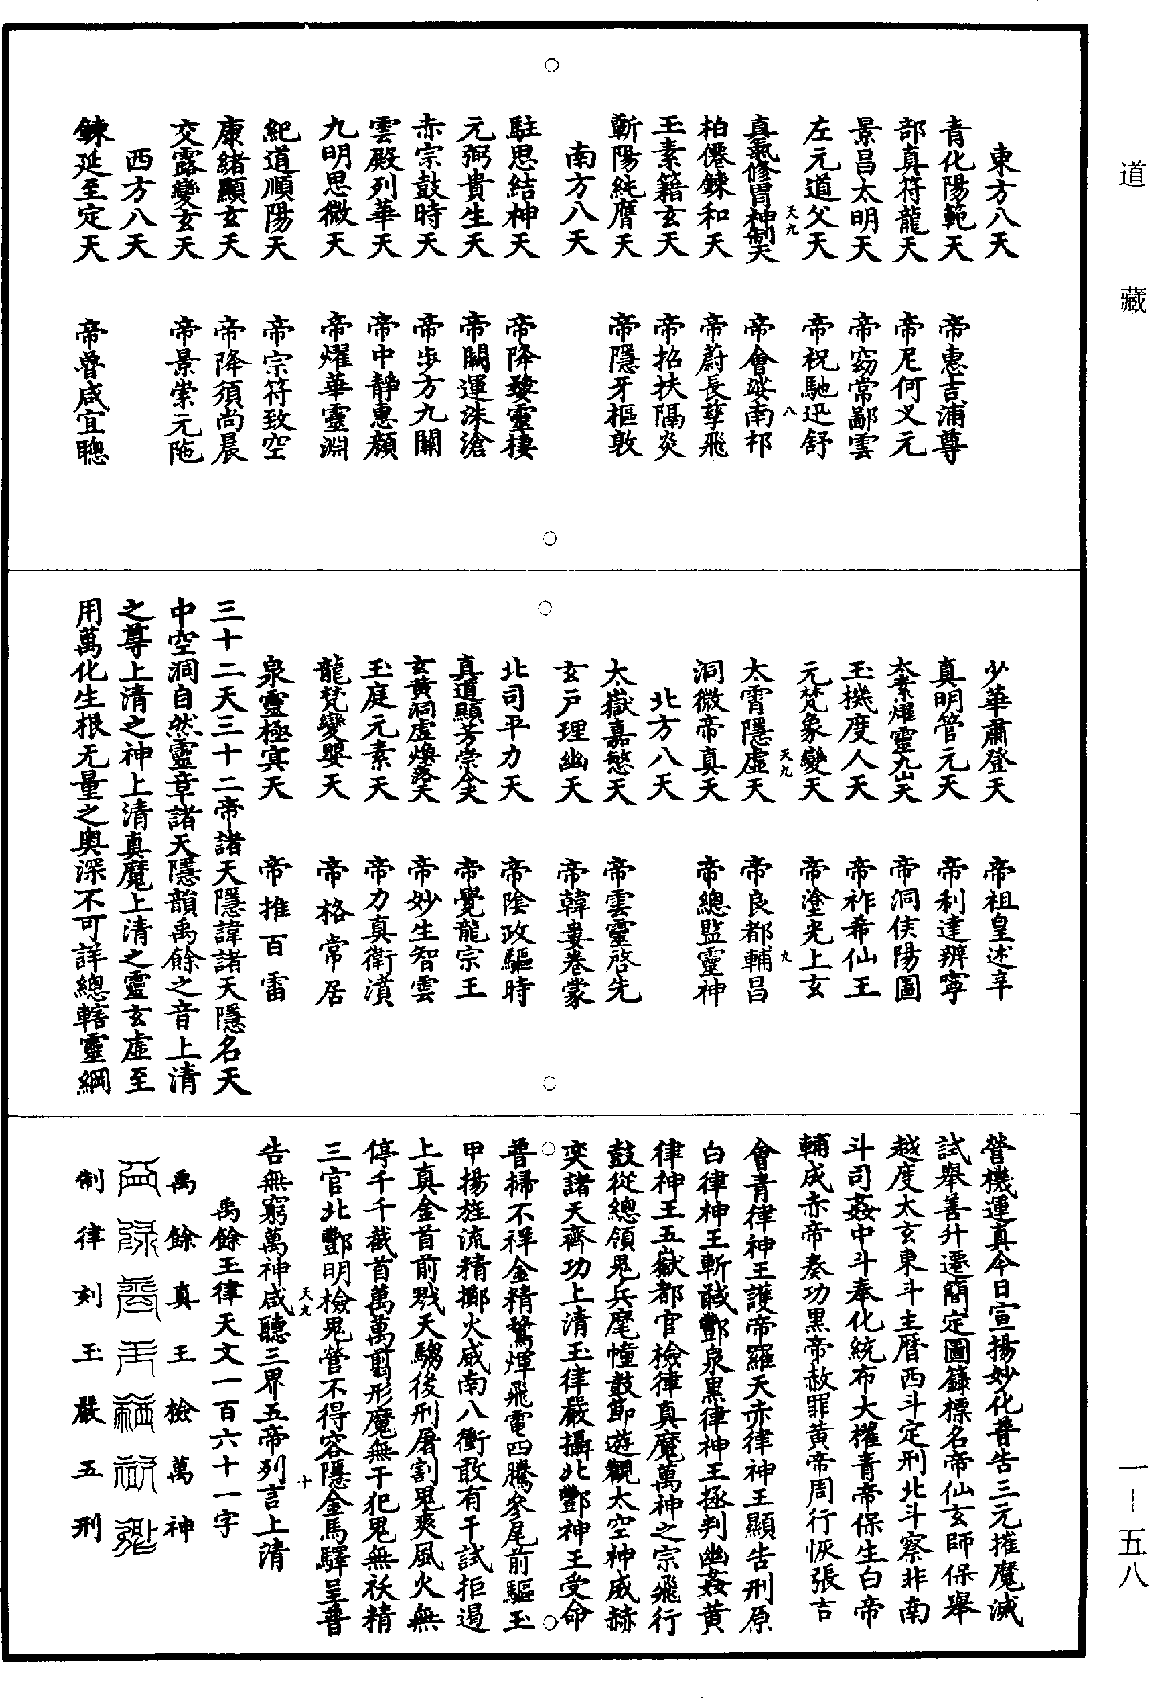 道藏
一—五八
東方八天
青化陽範天　帝惠吉浦尊
部真符龍天　帝尼何叉元
景昌太明天　帝窈常鄙雲
左元道父天　帝祝馳迅舒
真氣修胃神制天　帝會嵷南邦
天九　八
柏僊鍊和天　帝蔚長孳飛
王素籍玄天　帝招扶隔炎
斬陽純膺天　帝隱牙樞敦
南方八天
駐思結神天　帝降發靈棲
元弼貴生天　帝闢運洙滄
赤宗鼓時天　帝步方九關
雲殿列華天　帝中靜惠顏
九明思微天　帝燿華靈淵
紀道順陽天　帝宗符致空
康緒顯玄天　帝降須尚晨
交露變玄天　帝景崇元陁
西方八天
鍊延至定天　帝曾咸宜聰
少華肅登天　帝祖皇述辛
真明管元天　帝利達辨寧
太素燿靈九山天　帝洞俠陽圖
玉機度人天　帝祚希仙王
元梵象變天　帝塗光上玄
天九　九
太霄隱虛天　帝良都輔昌
洞微帝真天　帝總監靈神
北方八天
太嶽嘉慜天　帝雲靈啓先
玄戸理幽天　帝韓婁卷蒙
北司平力天　帝陰政驅時
真道顯芳崇合天　帝覺龍宗王
玄黃洞虛煥落天　帝妙生智雲
玉庭元素天　帝力真衛濆
龍梵變嬰天　帝格常居
泉靈極寘天　帝推百雷
三十二天三十二帝諸天隱諱諸天隱名天
中空洞自然靈章諸天隱韻禹餘之音上清
之尊上清之神上清真魔上清之靈玄虛至
用萬化生根无量之奧深不可詳總轄靈綱
營機運真今日宣揚妙化普告三元摧魔滅
試舉善升遷簡定圖籙標名帝仙玄師保舉
越度太玄東斗主曆西斗定刑北斗察非南
斗司姦中斗奉化統布大權青帝保生白帝
輔成赤帝奏功黑帝赦罪黃帝周行恢張吉
會青律神王護帝羅天赤律神王顯告刑原
白律神王斬馘酆泉黑律神王拯判幽姦黃
律神王五嶽都官檢律真魔萬神之宗飛行
鼓從總領鬼兵麾幢鼓節遊觀太空神威赫
奕諸天齊功上清玉律嚴攝北酆神王受命
普掃不祥金精騖煇飛電四騰參尾前驅玉
甲揚旌流精擲火威南八衝敢有干試拒遏
上真金首前戮天騶後刑屠割鬼爽風火無
停千千截首萬萬翦形魔無干犯鬼無袄精
三官北酆明檢鬼營不得容隱金馬驛呈普
天九　十
告無窮萬神咸聽三界五帝列言上清
禹餘玉律天文一百六十一字
禹餘真王檢萬神
制律刻玉嚴五刑